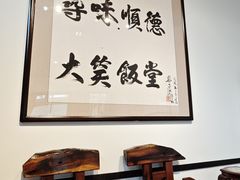 尋味順德
大笑飯堂